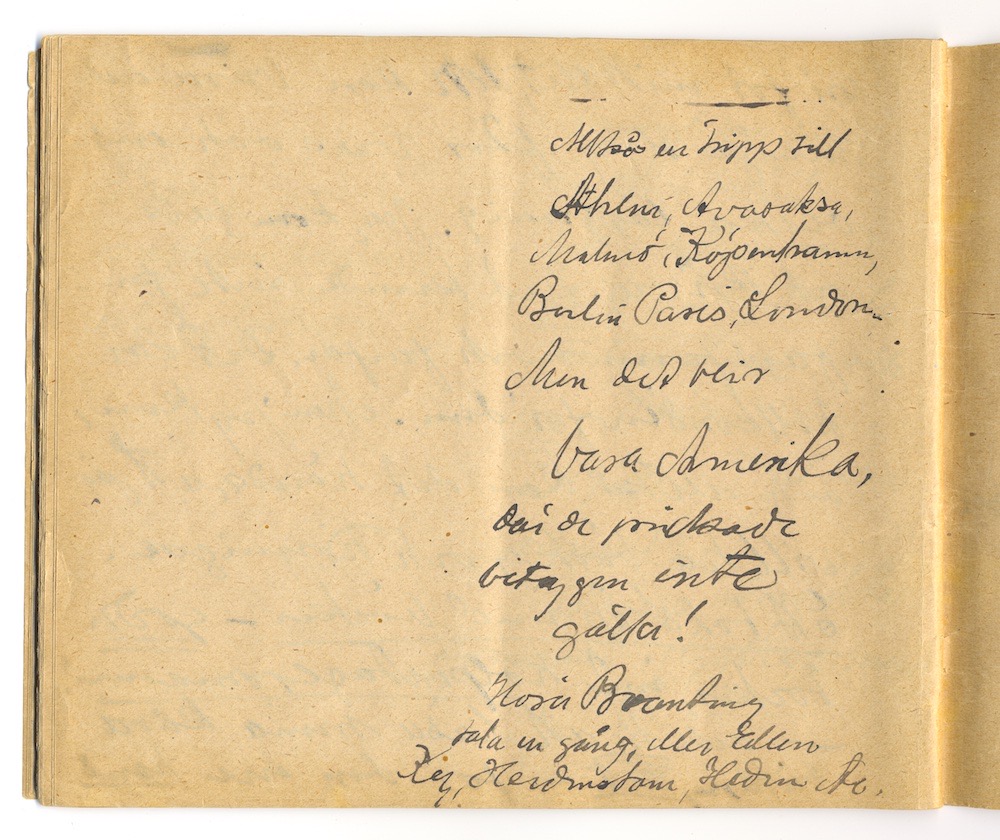 Alltså en tripp till
Athen, Avasaksa,
Malmö, Köpenhamn,
Berlin Paris, London
Men det blir
bara Amerika,
där de prickade
betygen inte
gälla!
Höra Branting
tala en gång, eller Ellen
Key, Heidenstam, Hedin